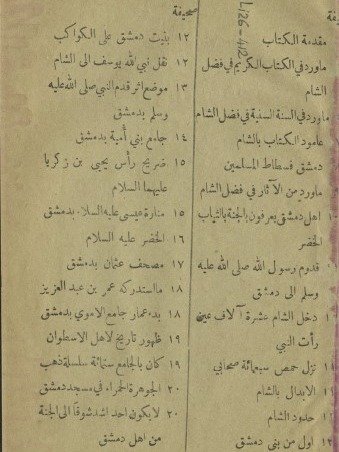 صحيفة
مقدمة الكتاب
ماورد في الكتاب الكريم في فضل
الشام
ماورد في السنة السنية في فضل الشام
عامود الكتاب بالشام
دمشق فسطاط المسلمين
ماورد من الآثار في فضل الشام
اهل دمشق يعرفون بالجنة بالثياب
الخضر
قدوم رسول الله صلى الله عليه
وسلم الى دمشق
دخل الشام عشرة آلاف عين
رأت النبي
نزل حمص سبعمائة صحابي
١١ الابدال بالشام
١١ حدود الشام
١٢ اول من بنى دمشق
صحيفة
١٢ بنيت دمشق على الكواكب
١٢ نقل نبي الله يوسف الى الشام
١٣ موضع اثر قدم النبي صلى الله عليه
وسلم بدمشق
١٤ جامع بني أمية بدمشق
١٥ ضريح رأس يحيى بن زكريا
عليهما السلام
١٥ منارة عيسى عليه السلام بدمشق
١٦ الخضر عليه السلام
١٧ مصحف عثمان بدمشق
١٨ مااستدركه عمر بن عبد العزيز
١٨ بدء عمار جامع الاموي بدمشق
١٩ ظهور تاريخ لاهل الاسطوان
١٩ كان بالجامع ستمائة سلسلة ذهب
٢٠ الجوهرة الحمراء في مسجد دمشق
٢٠ لا يكون احد اشد شوقا الى الجنة
من اهل دمشق